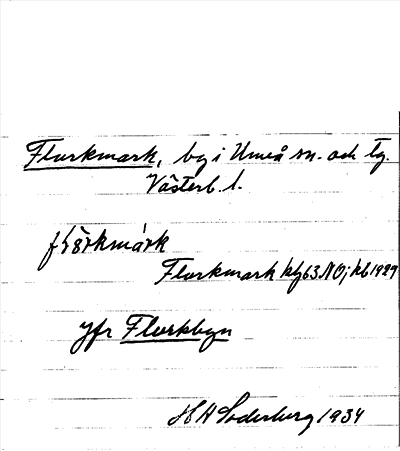 Flurkmark, by i Umeå sn. och tg.
Västerb. l.
Flurkmark kbl 63 NO; kb 1929
Jfr Flurkbyn
H A Söderberg 1934